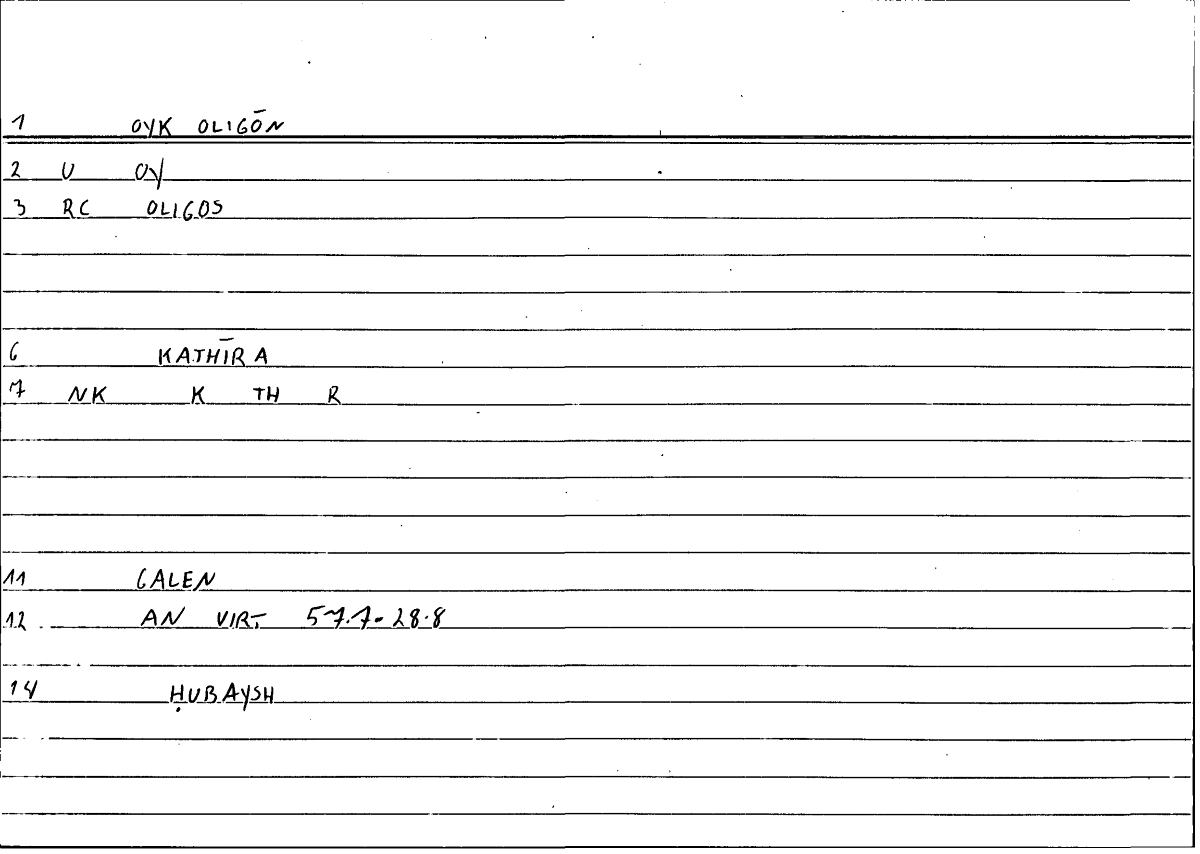 1 OYK OLIGŌN
2 U OY
3 RC OLIGOS
6 KATHĪRA
7 NK K TH R
11 GALEN
12 AN VIRT 57.7-28.8
14 ḤUBAYSH